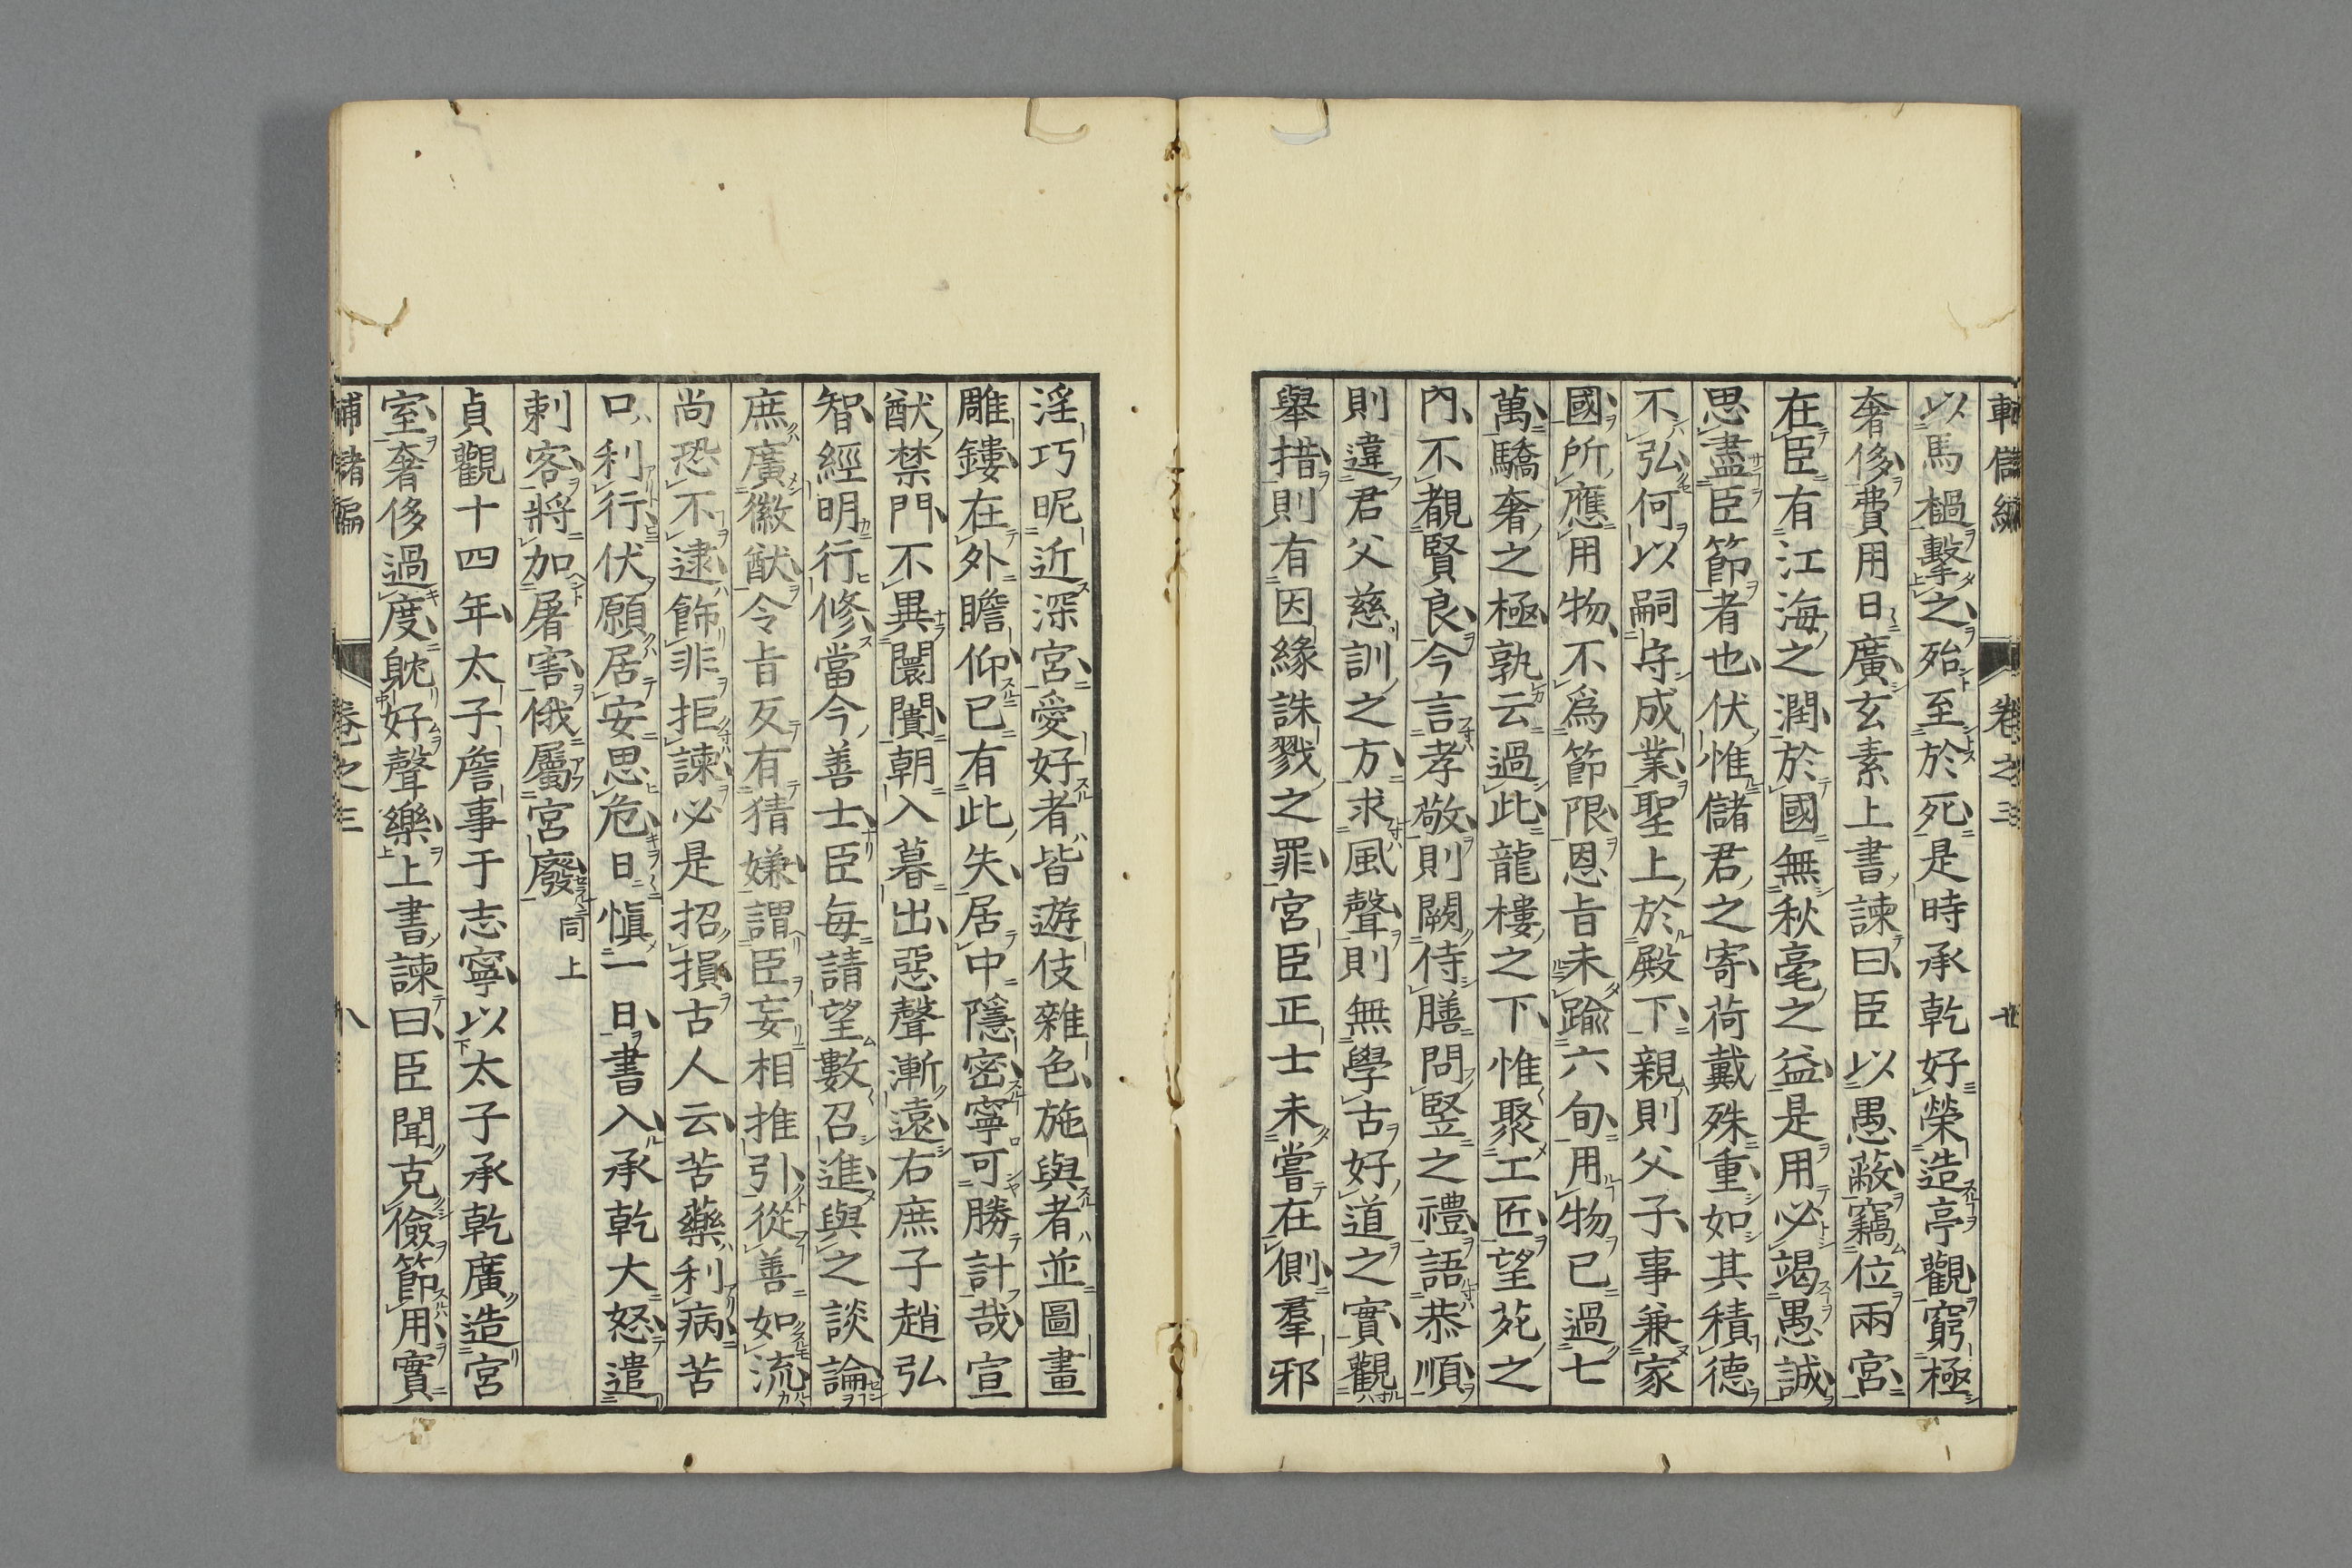 輔儲編 卷之三
以馬檛擊之殆至於死是時承乾好營造亭觀窮極
奢侈費用日廣玄素上書諫曰臣以愚蔽竊位兩宮
在臣有江海之潤於國無秋毫之益是用必竭愚誠
思盡臣節者也伏惟儲君之寄荷戴殊重如其積德
不弘何以嗣守成業聖上於殿下親則父子事兼家
國所應用物不爲節限恩旨未踰六旬用物已過七
萬驕奢之極孰云過此龍樓之下惟聚工匠望苑之
內不覩賢良今言孝敬則闕侍膳問豎之禮語恭順
則違君父慈訓之方求風聲則無學古好道之實觀
舉措則有因緣誅戮之罪宮臣正士未嘗在側羣邪
淫巧昵近深宮愛好者皆遊伎雜色施與者並圖畫
雕鏤在外瞻仰已有此失居中隱密寧可勝計哉宣
猷禁門不異闤闠朝入暮出惡聲漸遠右庶子趙弘
智經明行修當今善士臣每請望數召進與之談論
庶廣徽猷令旨反有猜嫌謂臣妄相推引從善如流
尚恐不逮飾非拒諫必是招損古人云苦藥利病苦
口利行伏願居安思危日愼一日書入承乾大怒遣
刺客將加屠害俄屬宮廢同上
貞觀十四年太子詹事于志寧以太子承乾廣造宮
室奢侈過度躭好聲樂上書諫曰臣聞克儉節用實
輔儲編 卷之三